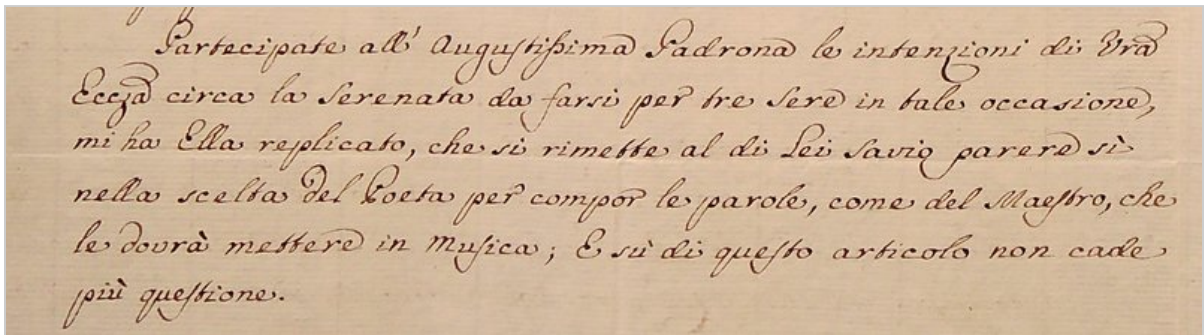 Partecipate all' Augustissima Padrona le intenzioni di Vra
Eccza circa la Serenata da farsi per tre Sere in tale occasione,
mi ha Ella replicato, che si rimette al di Lei Savio parere sì
nella scelta del Poeta per compor le parole, come del Maestro, che
le dovrà mettere in Musica; E sù di questo articolo non cade
più questione.